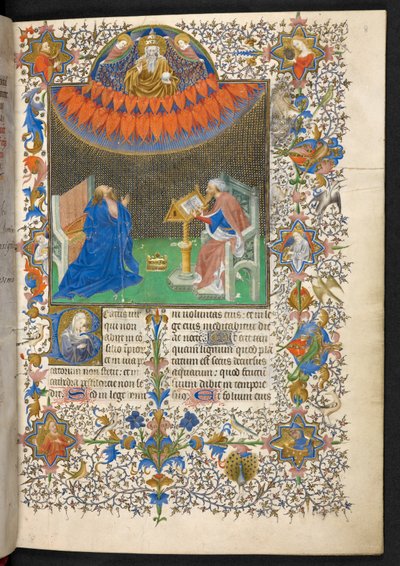 Beatus uir
qui non
abiit in co
silio ipior
et in uia pec
catorum non stetit: et in
cathedra pestilentie non se
dit. Sed in lege domi
ni uoluntas eius: et in le
ge eius meditabitur die
ac nocte. Et erit tan
quam lignum quod pla
tatum est secus decursus
aquarum: quod fructu
suum dabit in tempore
suo. Et folium eius